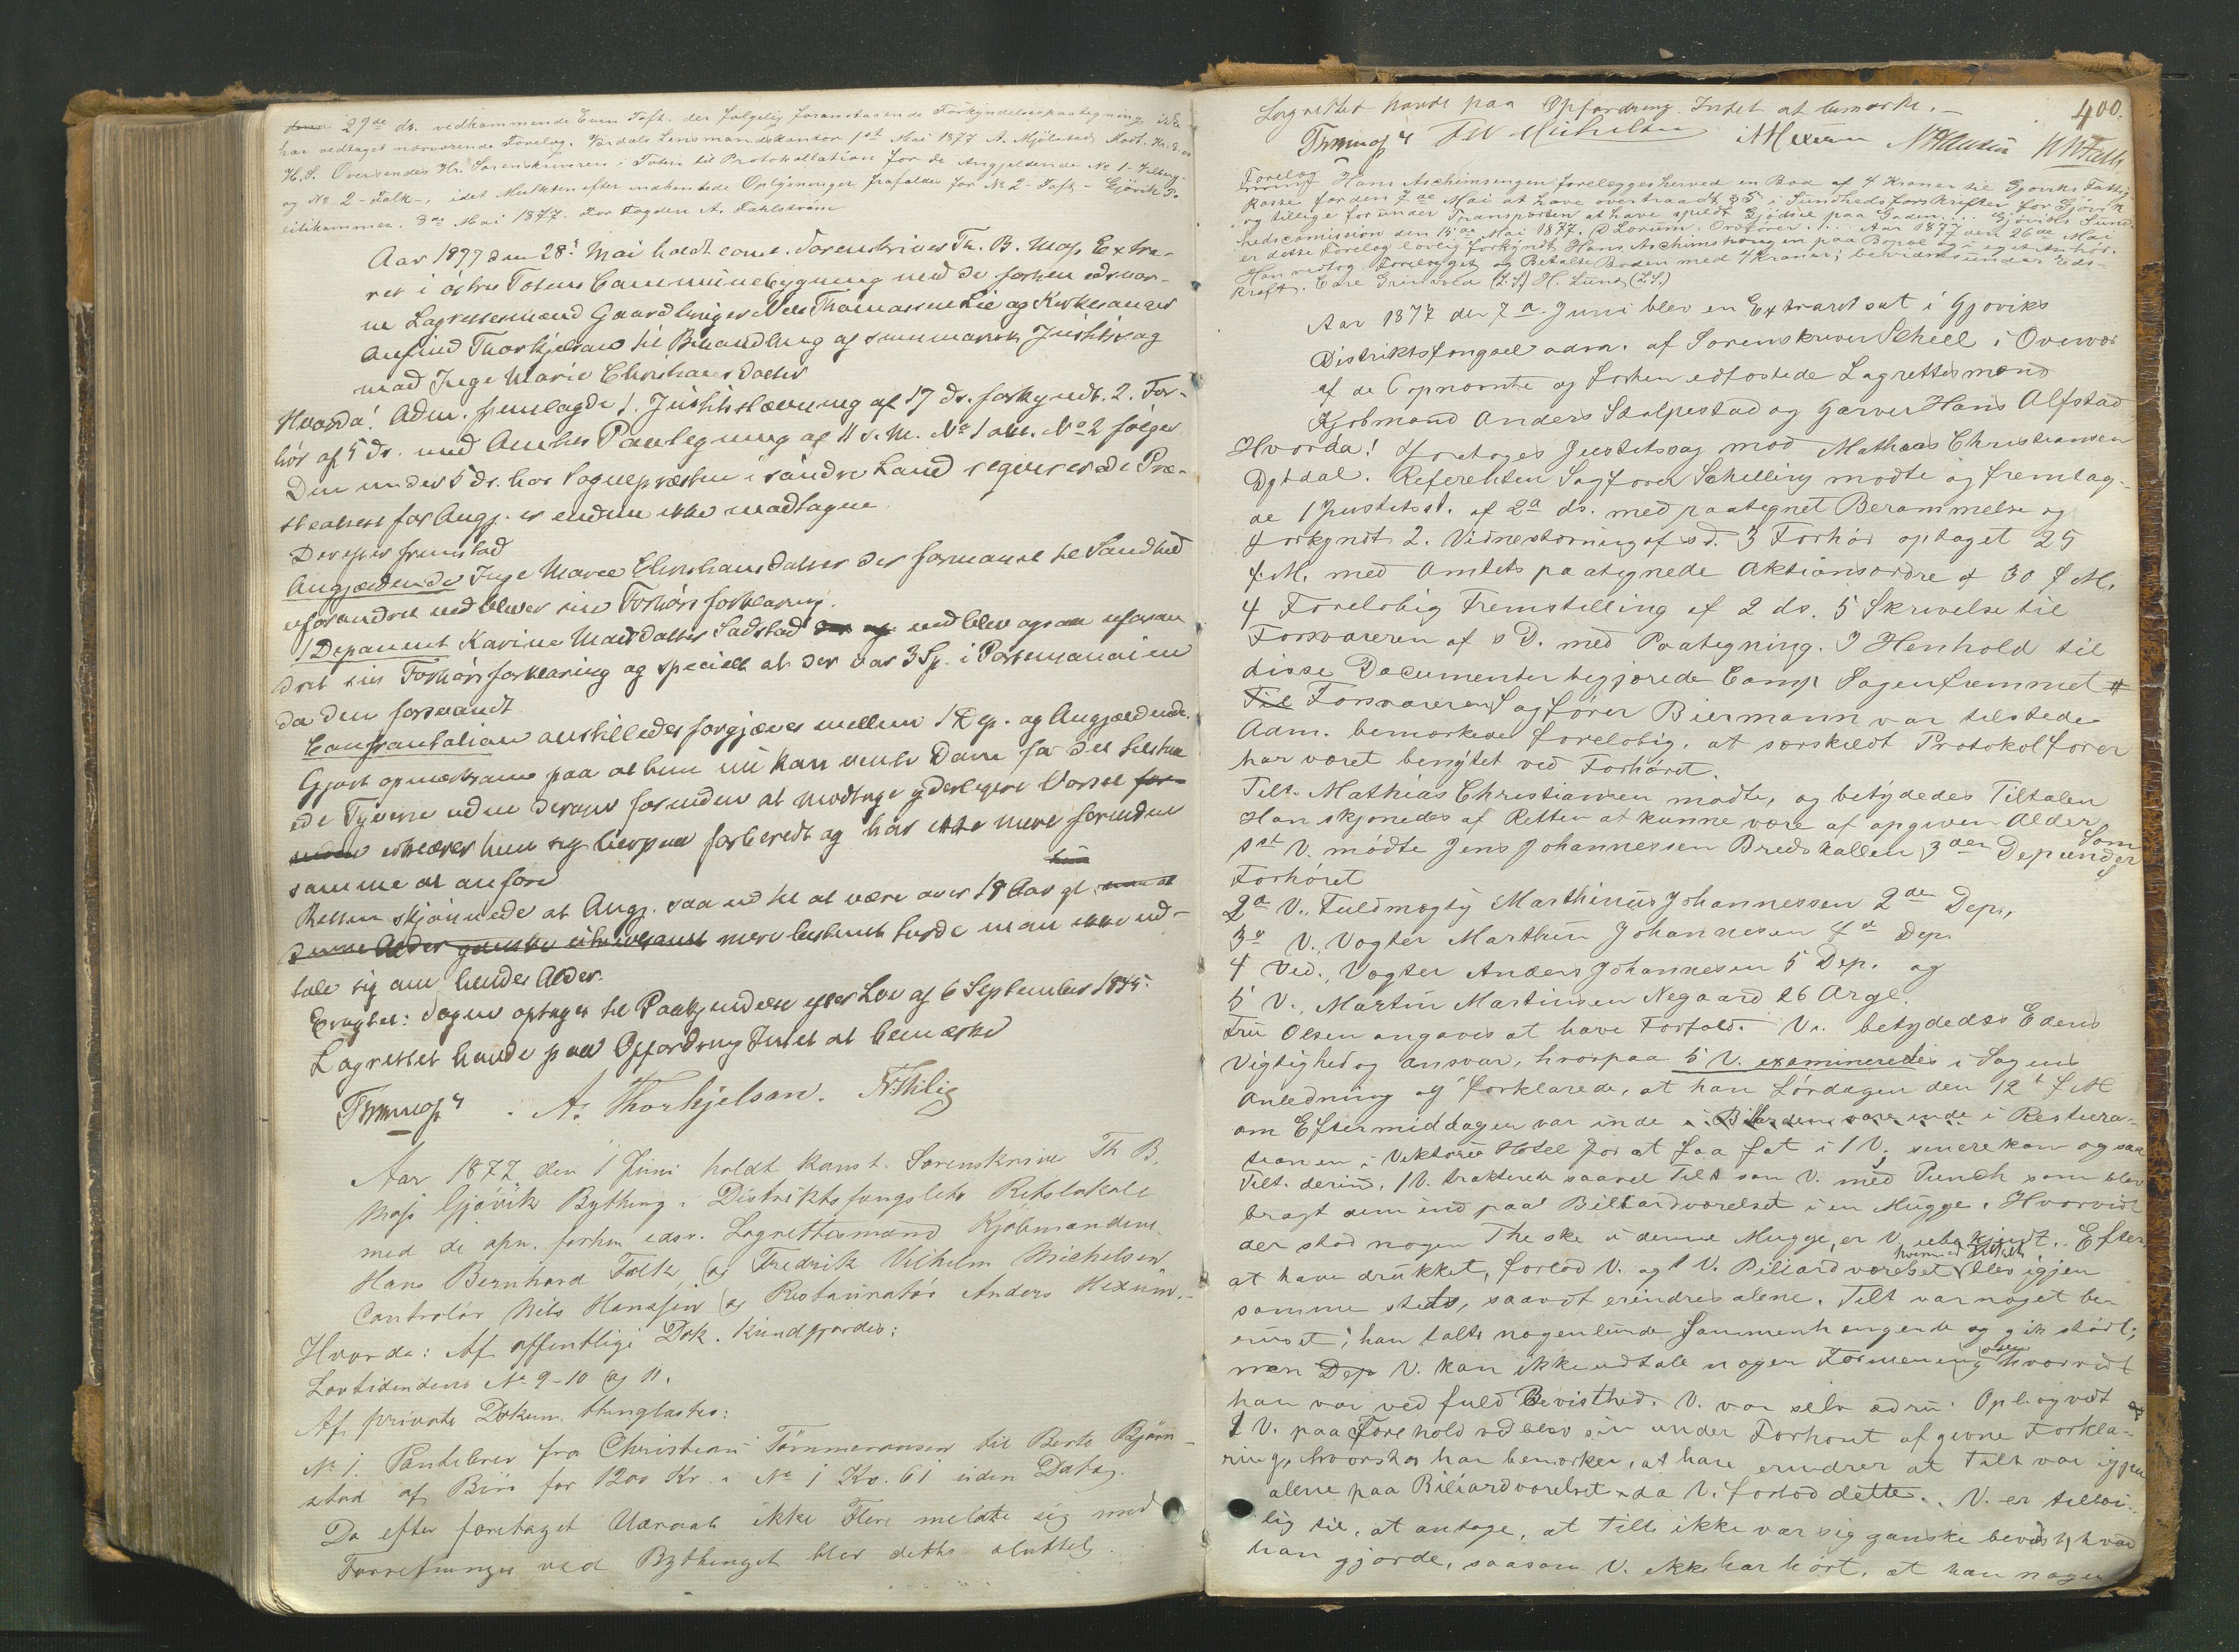 29de ds. vedkommende Even Toft. der følgelig foranstaaende Forkyndelsespaategning ikke
har vedtaget nærværende Forelæg. Vardals Lensmandskontor 1st Mai 1877 A. Mjölstad Modt. Kr. 8.00
H. S. Oversendes Hr. Sorenskriveren i Toten til Protokollation for de Angjeldende No 1-
og No 2 - Falk -, idet Mulkten efter indhentede Oplysninger frafaldes for No 2 - Toft - Gjövik Po-
litikammer. 8de Mai 1877. For Fogden A. Fahlstrøm
Aar 1877 den 28de Mai holdt const. Sorenskriver Th. B. Moss Extra-
ret i østre Totens Communebygning med de forhen edsvor-
ne Lagrettesmænd Gaardbruger Nils Thomassen Lie og Kirkesanger
Anfind Thorkjelsen til Behandling af summarisk Justitssag
mod Inge Marie Christiansdatter
Hvorda! Adm. fremlagde 1. Justitsstævning af 17 ds. forkyndt. 2. For-
hör af 5 ds. med Amtets Paategning af 11 s. M. No 1 akk. No 2 følger
Den under 5 ds. hos Sognepræsten i søndre Land reqvirerede Præ-
steattest for Angj. er endnu ikke modtagen
Derefter fremstod
Angjældende Inge Marie Christiansdatter der formanet til Sandhed
uforandret vedblev sin Forhörsforklaring.
1 Deponent Karine Madsdatter Sadstad der og vedblev ogsaa uforan
dret sin Forhörsforklaring og specielt at der var 3 Sp. i Portemonaien
da den forsvandt
Confrontation anstilledes forgjæves mellem 1 Dep. og Angjældende.
Gjort opmærksom paa at hun nu kan vente Dom for det tilstaa
ede Tyverie uden derom forinden at modtage yderligere Varsel for-
inden erklærer hun sig herpaa forberedt og har ikke mere forinden
samme at anføre hun
Retten skjönnede at Angj. saa ud til at være over 18 Aar gl. men at
denne Alder ganske utvivlsomt mere bestemt turde man ikke ud-
tale sig om hendes Alder.
Eragtet: Sagen optages til Paakjendelse efter Lov af 6 September 1845.
Lagrettet havde paa Opfordring Intet at bemærke
ThBMoss A. Thorkjelsen. NThLie
Aar 1877 den 1 Juni holdt konst. Sorenskriver Th B.
Moss Gjövik Bything i Distriktsfængslets Retslokale
med de opn. forhen edsv. Lagrettesmænd Kjöbmændene
Hans Bernhard Falk, og Fredrik Vilhelm Michelsen
Controlör Nils Hanssen og Restauratör Anders Hexum.-
Hvorda: Af offentlige Dok. kundgjordes:
Lovtidendens No 9-10 og 11.
Af private Dokum. thinglæstes:
No 1. Pantebrev fra Christian Tömmeraasen til Berte Björn-
stad af Biri for 1200 Kr. i No 1 Kv. 61 uden Datag.
Da efter foretaget Udraab ikke Flere meldte sig med
Forretninger ved Bythinget blev dette sluttet.
400.
Lagrettet havde paa Opfordring Intet at bemærke.-
ThBMoss FW Michelsen AHexum NHanssen HBFalk
Forelæg
Hans Aschimsengen forelægges herved en Bod af 4 Kroner til Gjöviks Fattig-
kasse for den 7de Mai at have overtraadt § 5 i Sundhedsforskrifter for Gjövik
og tillige for under Transporten at have spildt Gjødsel paa Gaden.... Gjöviks Sund-
hedscomission den 15de Mai 1877. O Lorum. Ordfører.... Aar 1877 den 26de Mai
er dette Forelæg lovlig forkyndt Hans Aschimshengen paa Bopæl og i eget Anhør.
Han vedtog Forelægget og Betalte Boden med 4 Kroner; bevidnes under Eds-
kraft. Edre Grimsvea (L.S.) H. Lund (L.S.)
Aar 1877 den 7de Juni blev en Extraret sat i Gjöviks
Distriktsfængsel adm. af Sorenskriver Scheel i Overvær
af de Opnævnte og Forhen edfæstede Lagrettesmænd
Kjøbmand Anders Stolpestad og Garver Hans Alfstad
Hvorda! Foretoges Justitssag mod Mathias Christiansen
Dybdal. Referenten Sagfører Schelling mødte og fremlag-
de 1 Justitsst. af 2de ds. med paategnet Berammelse og
Forkyndt 2. Vidnestævning af s.D. 3 Forhør optaget 25
f.M. med Amtets paategnede Aktionsordre af 30 f.M.
4 Forelöbig Fremstilling af 2 ds. 5 Skrivelse til
Forsvareren af s D. med Paategning. I Henhold til
disse Documenter begjærede Comp Sagen fremmet #
Til Forsvareren Sagfører Biermann var tilstede
Adm. bemærkede foreløbig, at særskildt Protokolfører
har været benyttet ved Forhøret.
Tilt. Mathias Christiansen mødte, og betydedes Tiltalen
Han skjønedes af Retten at kunne være af opgiven Alder
1st V. mødte Jens Johannessen Bredskallen 3die Dep under Som
Forhöret
2det V., Fuldmægtig Marthinus Johannessen 2den Dep.,
3de V. Vogter Marthin Johannesen 4de Dep.
4 Vid., Vogter Anders Johannesen 5 Dep. og
5 V., Martin Martinsen Negaard 26 Ar gl.
Fru Olsen angaves at have Forfald. V. betydedes Edens
Vigtighed og Ansvar, hvorpaa 5 V. examineredes i Sagens
Anledning og forklarede, at han Lördagen den 12t f M
om Eftermiddagen var inde i Billarden var inde i Restura-
tionen i Viktoria Hotel for at faa fat i 1 V; senere kom ogsaa
Tilt. derind. 1 V. trakterede saavel Tilt som V. med Punch som blev
bragt dem ind paa Billiardværelset i en Mugge. Hvorvidt
der stod nogen Theske i denne Mugge, er V. ubekjendt. Efter
at have drukket, forlod V. og 1 V. Biliardværelset hvorved Tilt blev igjen
samme steds, saavidt erindres alene. Tilt var noget be-
ruset; han talte nogenlunde Sammenhængende og gik stödt;
men Dep V. kan ikke udtale nogen Formening om hvorvidt
han var ved fuld Bevisthed. V. var selv ædru. Oplagvidt
1 V. paa Forehold vedblev sin under Forhöret afgivne Forkla-
ring, hvorhos han bemærker, at han erindrer at Tilt var igjen
alene paa Biliardværelset da V. forlod dette. V. er tilböi-
lig til, at antage, at Tilt. ikke var sig ganske bevidst, hvad
han gjorde, saasom V. ikke har hört, at han nogen